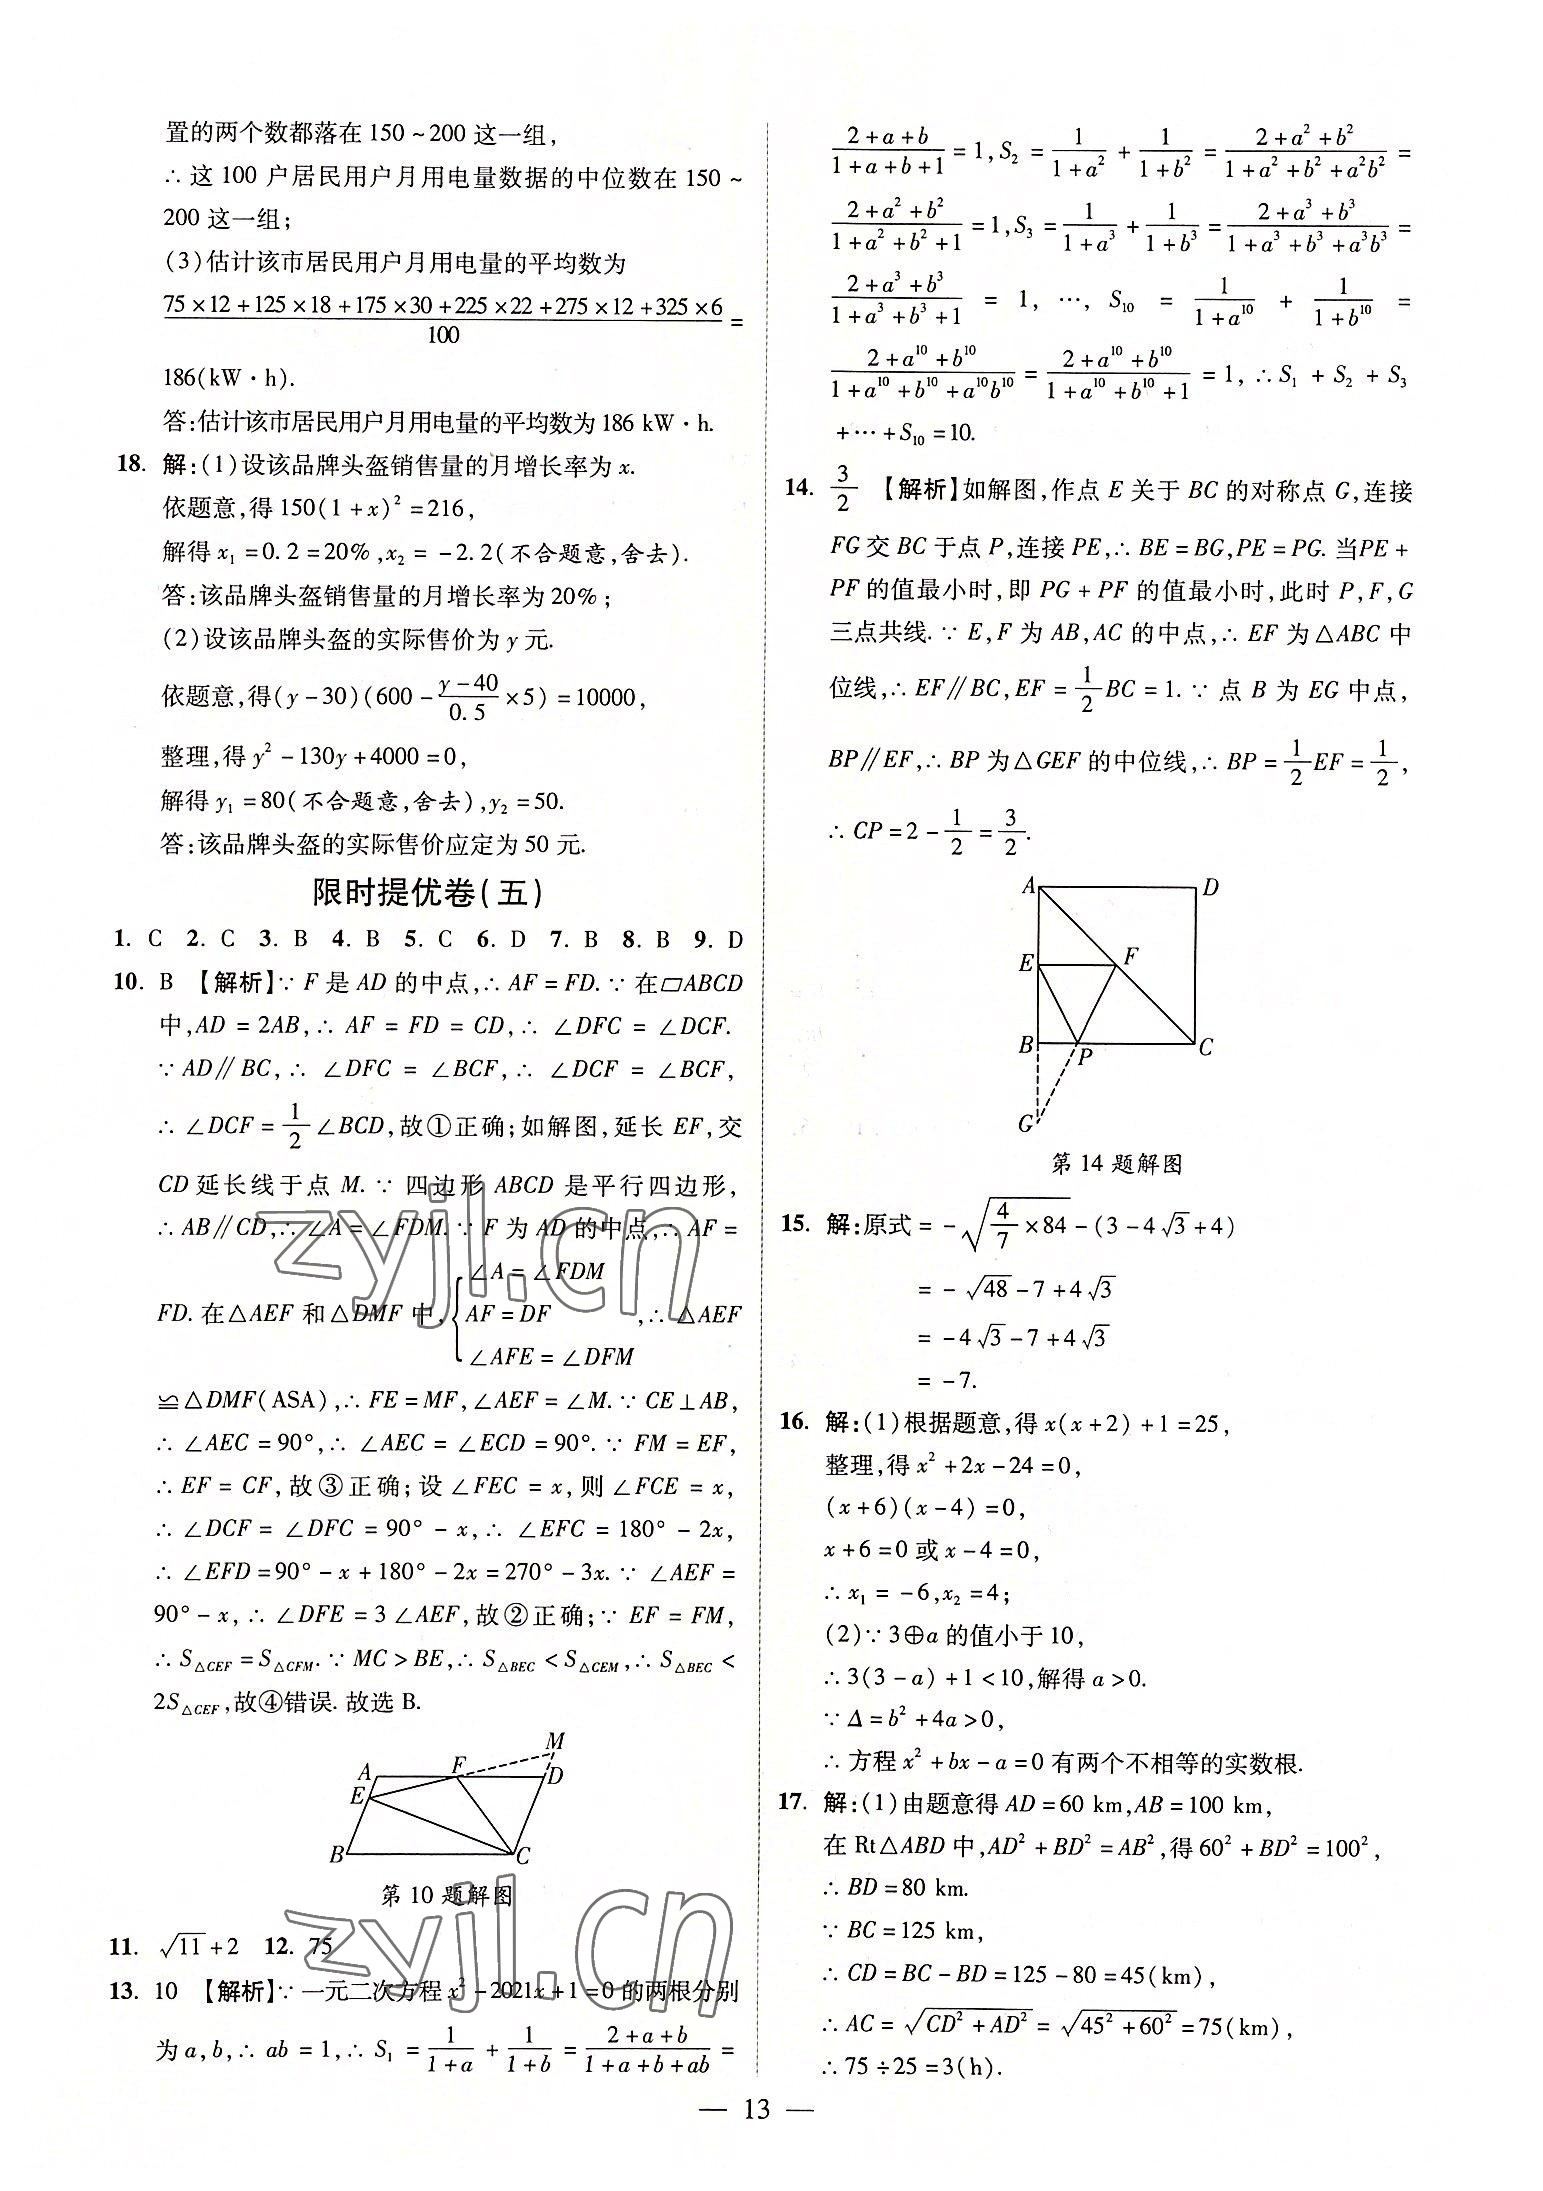 置的两个数都落在 150 ~ 200 这一组,
∴ 这 100 户居民用户月用电量数据的中位数在 150 ~
200 这一组;
(3)估计该市居民用户月用电量的平均数为
(75×12+125×18+175×30+225×22+275×12+325×6)/100 =
186(kW·h).
答:估计该市居民用户月用电量的平均数为 186 kW·h.
18. 解:(1)设该品牌头盔销售量的月增长率为 x.
依题意,得 150(1+x)² = 216,
解得 x₁ = 0.2 = 20%, x₂ = -2.2(不合题意,舍去).
答:该品牌头盔销售量的月增长率为 20%;
(2)设该品牌头盔的实际售价为 y 元.
依题意,得(y-30)(600 - (y-40)/0.5 ×5) = 10000,
整理,得 y² - 130y + 4000 = 0,
解得 y₁ = 80(不合题意,舍去), y₂ = 50.
答:该品牌头盔的实际售价应定为 50 元.
限时提优卷(五)
1. C 2. C 3. B 4. B 5. C 6. D 7. B 8. B 9. D
10. B 【解析】∵ F 是 AD 的中点,∴ AF = FD. ∵ 在▱ABCD
中, AD = 2AB, ∴ AF = FD = CD, ∴ ∠DFC = ∠DCF.
∵ AD∥BC, ∴ ∠DFC = ∠BCF, ∴ ∠DCF = ∠BCF,
∴ ∠DCF = 1/2 ∠BCD,故①正确;如解图,延长 EF,交
CD 延长线于点 M. ∵ 四边形 ABCD 是平行四边形,
∴ AB∥CD, ∴ ∠A = ∠FDM. ∵ F 为 AD 的中点, ∴ AF =
∠A = ∠FDM
FD. 在△AEF 和△DMF 中, { AF = DF , ∴ △AEF
∠AFE = ∠DFM
≌△DMF(ASA), ∴ FE = MF, ∠AEF = ∠M. ∵ CE⊥AB,
∴ ∠AEC = 90°, ∴ ∠AEC = ∠ECD = 90°. ∵ FM = EF,
∴ EF = CF,故③正确;设 ∠FEC = x,则 ∠FCE = x,
∴ ∠DCF = ∠DFC = 90° - x, ∴ ∠EFC = 180° - 2x,
∴ ∠EFD = 90° - x + 180° - 2x = 270° - 3x. ∵ ∠AEF =
90° - x, ∴ ∠DFE = 3∠AEF,故②正确; ∵ EF = FM,
∴ S△CEF = S△CFM. ∵ MC > BE, ∴ S△BEC < S△CEM, ∴ S△BEC <
2S△CEF,故④错误. 故选 B.
M
A F D
E
B C
第 10 题解图
11. √11 + 2 12. 75
13. 10 【解析】∵ 一元二次方程 x² - 2021x + 1 = 0 的两根分别
为 a, b, ∴ ab = 1, ∴ S₁ = 1/(1+a) + 1/(1+b) = (2+a+b)/(1+a+b+ab) =
(2+a+b)/(1+a+b+1) = 1, S₂ = 1/(1+a²) + 1/(1+b²) = (2+a²+b²)/(1+a²+b²+a²b²) =
(2+a²+b²)/(1+a²+b²+1) = 1, S₃ = 1/(1+a³) + 1/(1+b³) = (2+a³+b³)/(1+a³+b³+a³b³) =
(2+a³+b³)/(1+a³+b³+1) = 1, …, S₁₀ = 1/(1+a¹⁰) + 1/(1+b¹⁰) =
(2+a¹⁰+b¹⁰)/(1+a¹⁰+b¹⁰+a¹⁰b¹⁰) = (2+a¹⁰+b¹⁰)/(1+a¹⁰+b¹⁰+1) = 1, ∴ S₁ + S₂ + S₃
+ … + S₁₀ = 10.
14. 3/2 【解析】如解图,作点 E 关于 BC 的对称点 G,连接
FG 交 BC 于点 P,连接 PE, ∴ BE = BG, PE = PG. 当PE +
PF 的值最小时,即 PG + PF 的值最小时,此时 P, F, G
三点共线. ∵ E, F 为 AB, AC 的中点, ∴ EF 为△ABC 中
位线, ∴ EF∥BC, EF = 1/2 BC = 1. ∵ 点 B 为 EG 中点,
BP∥EF, ∴ BP 为△GEF 的中位线, ∴ BP = 1/2 EF = 1/2,
∴ CP = 2 - 1/2 = 3/2.
A D
E F
B P C
G
第 14 题解图
15. 解:原式 = -√(4/7 ×84) - (3 - 4√3 + 4)
= -√48 - 7 + 4√3
= -4√3 - 7 + 4√3
= -7.
16. 解:(1)根据题意,得 x(x+2) + 1 = 25,
整理,得 x² + 2x - 24 = 0,
(x+6)(x-4) = 0,
x+6 = 0 或 x-4 = 0,
∴ x₁ = -6, x₂ = 4;
(2)∵ 3⊕a 的值小于 10,
∴ 3(3-a) + 1 < 10,解得 a > 0.
∵ Δ = b² + 4a > 0,
∴ 方程 x² + bx - a = 0 有两个不相等的实数根.
17. 解:(1)由题意得 AD = 60 km, AB = 100 km,
在 Rt△ABD 中, AD² + BD² = AB²,得 60² + BD² = 100²,
∴ BD = 80 km.
∵ BC = 125 km,
∴ CD = BC - BD = 125 - 80 = 45(km),
∴ AC = √(CD² + AD²) = √(45² + 60²) = 75(km),
∴ 75÷25 = 3(h).
— 13 —
zyjl.cn
zyjl.cn